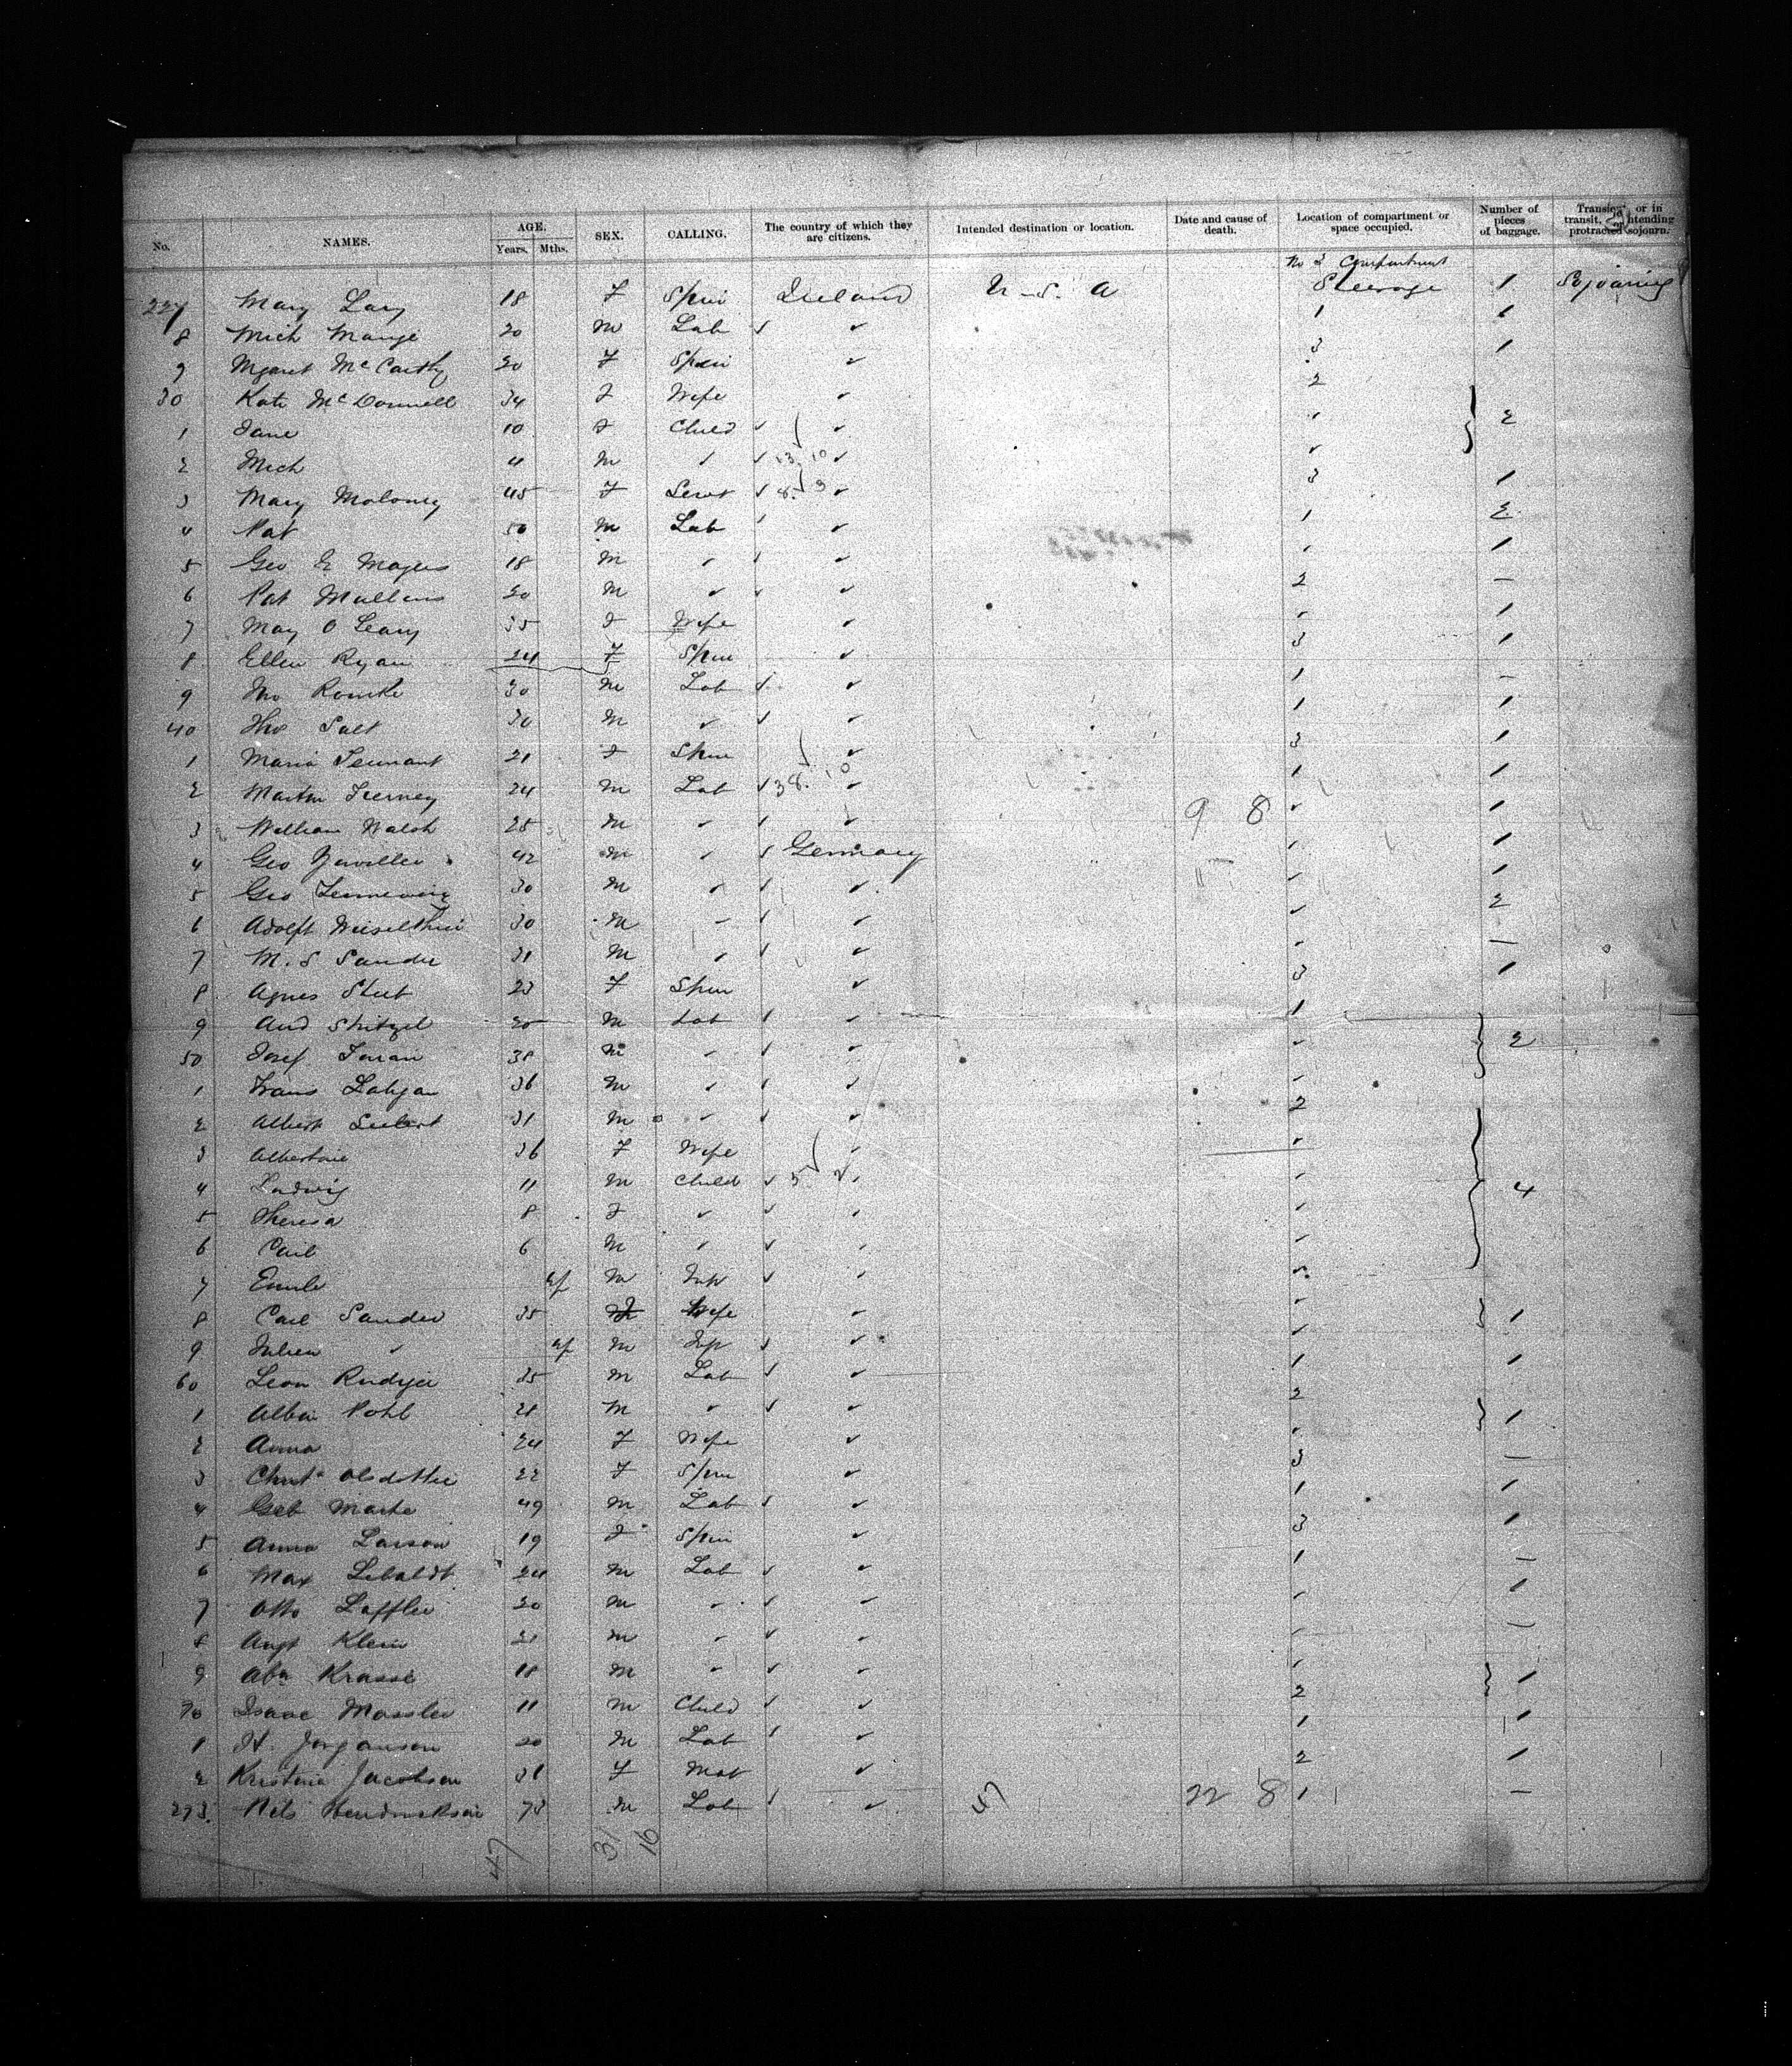 No. NAMES. AGE. Years. Mths. SEX. CALLING. The country of which they are citizens. Intended destination or location. Date and cause of death. Location of compartment or space occupied. Number of pieces of baggage. Transient or in transit, or intending protracted sojourn.
No of Compartment
227 Mary Lary 18 F Spin Ireland U.S. A Steerage 1 Sojouring
8 Mich 20 M Lab ✓ ✓ 1 1
9 Mgaret McCarthy 20 F Spin ✓ 3 1
30 Kate McDonnell 34 F Wife ✓ 2
1 Jane 10 F Child ✓ ✓ ✓ 2
2 Mich 4 M ✓ ✓ 13 10 ✓ ✓
3 Mary Moloney 45 F Servt ✓ 8 3 ✓ 3 1
4 Pat 50 M Lab ✓ ✓ 1 2
5 Geo E Mayers 18 M ✓ ✓ ✓ ✓ 1
6 Pat Mullens 20 M ✓ ✓ ✓ 2 —
7 May O Leary 35 F Wife ✓ ✓ 1
8 Ellen Ryan 24 F Spin ✓ 3 1
9 Jno Rourke 30 M Lab ✓ ✓ 1 —
40 Tho Salt 30 M ✓ ✓ ✓ 1 1
1 Maria Tennant 21 F Spin ✓ 3 1
2 Martin Tierney 24 M Lab ✓ 38 10 ✓ 1 1
3 William Walsh 25 M ✓ ✓ ✓ 9 8 ✓ 1
4 Geo 42 M ✓ ✓ Germany ✓ 1
5 Geo 30 M ✓ ✓ ✓ ✓ 1
6 Adolft 30 M ✓ ✓ ✓ ✓ 2
7 M. S Sander 31 M ✓ ✓ ✓ ✓ —
8 Agnes 23 F Spin ✓ 3 1
9 And Spitzel 20 M Lab ✓ ✓ 1
50 Josef 38 M ✓ ✓ ✓ ✓ 2
1 Frans 36 M ✓ ✓ ✓ ✓
2 Albert 31 M ✓ ✓ ✓ 2
3 Albertine 36 F Wife ✓ ✓
4 Ludwig 11 M Child ✓ 5 2 ✓ 4
5 Theresa 8 F ✓ ✓ ✓ ✓
6 Carl 6 M ✓ ✓ ✓ ✓
7 Emile inf M Inf ✓ ✓ ✓
8 Carl Sander 35 F Wife ✓ ✓ 1
9 Julien ✓ inf M Inf ✓ ✓ ✓
60 Leon 35 M Lab ✓ ✓ 1 1
1 Albin Pohl 21 M ✓ ✓ ✓ 2 1
2 Anna 24 F Wife ✓ ✓
3 Christa Olsdotter 22 F Spin ✓ 3 —
4 Geb Marke 49 M Lab ✓ ✓ 1 1
5 Anna Larson 19 F Spin ✓ 3 1
6 Max 24 M Lab ✓ ✓ 1 —
7 Otto Loffler 20 M ✓ ✓ ✓ ✓ 1
8 Augt Klein 21 M ✓ ✓ ✓ ✓ —
9 Abm Krasse 18 M ✓ ✓ ✓ ✓ 1
70 Isaac Massler 11 M Child ✓ ✓ 2
1 H. Jorganson 20 M Lab ✓ ✓ 1 1
2 Kristine Jacobson 31 F Mat ✓ 2 1
273 Nils Hendrickson 73 M Lab ✓ ✓ 47 22 8 1 —
47 31 16